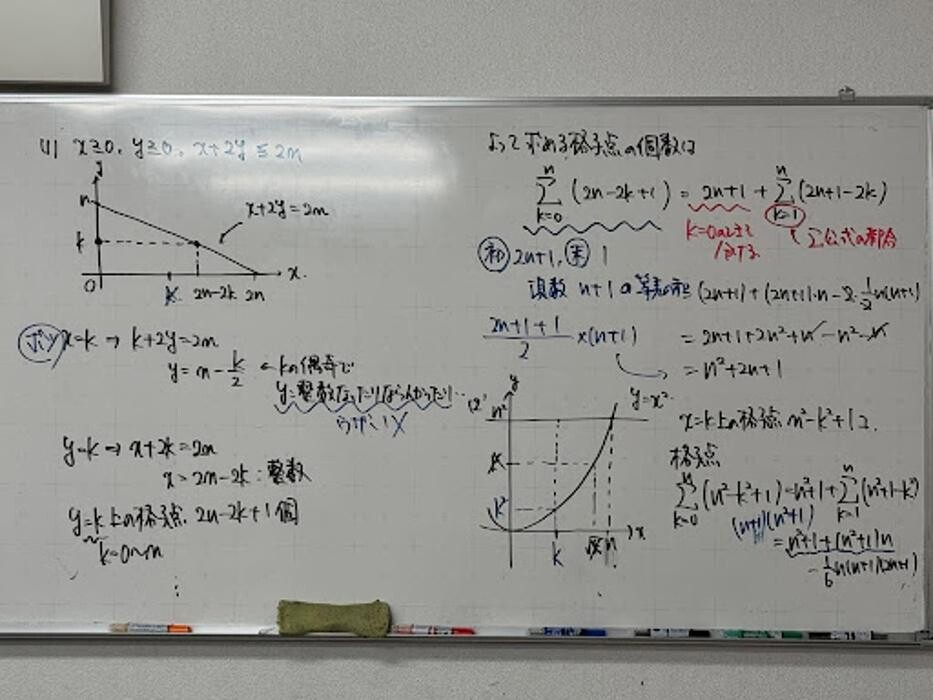 (1) x≧0, y≧0, x+2y≦2n
y
n
x+2y=2n
k
O k 2n-2k 2n x
x=k → k+2y=2n
y=n-k/2 ← kの偶奇で
y=整数なったりならんかったり…
うざい
y=k → x+2k=2n
x=2n-2k:整数
y=k上の格子点 2n-2k+1個
k=0~n
よって求める格子点の個数は
n
Σ(2n-2k+1) = 2n+1 + Σ(2n+1-2k)
k=0 k=1
Σ公式の都合
初 2n+1, 末 1
項数 n+1の等差の和
(2n+1)+(2n+1)・n-2・1/2n(n+1)
(2n+1+1)/2 ×(n+1)
=2n+1+2n²+n-n²-n
=n²+2n+1
(2)
y
n²
y=x²
k
k²
k √k n x
x=k上の格子点 n²-k²+1コ
格子点
Σ(n²-k²+1)=n²+1+Σ(n²+1-k²)
k=0 k=1
(n+1)(n²+1)
=n²+1+(n²+1)n
-1/6n(n+1)(2n+1)